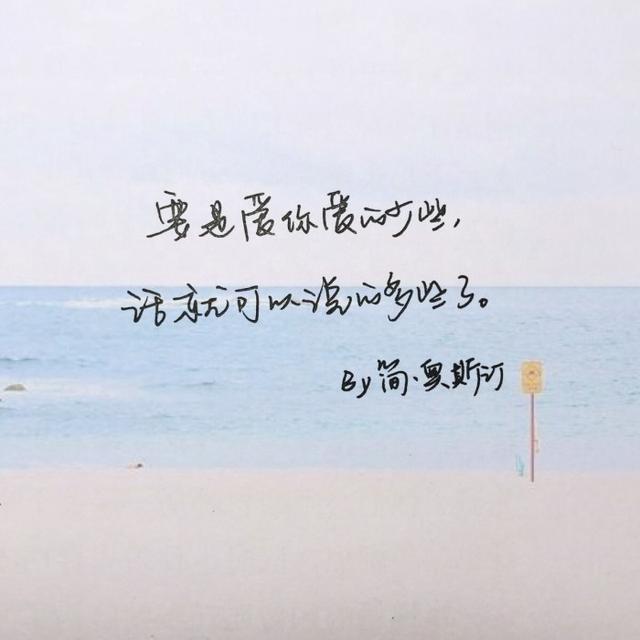 要是爱你爱的少些,
话就可以说的多些了。
By 简·奥斯汀